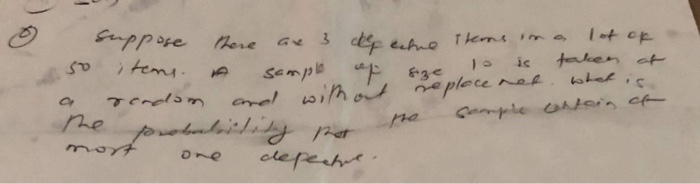 ⑧ Suppose there are 3 defective items in a lot of
50 items. A sample of size 10 is taken at
a random and without replacement. what is
the probability that the sample contain at
most one defective.